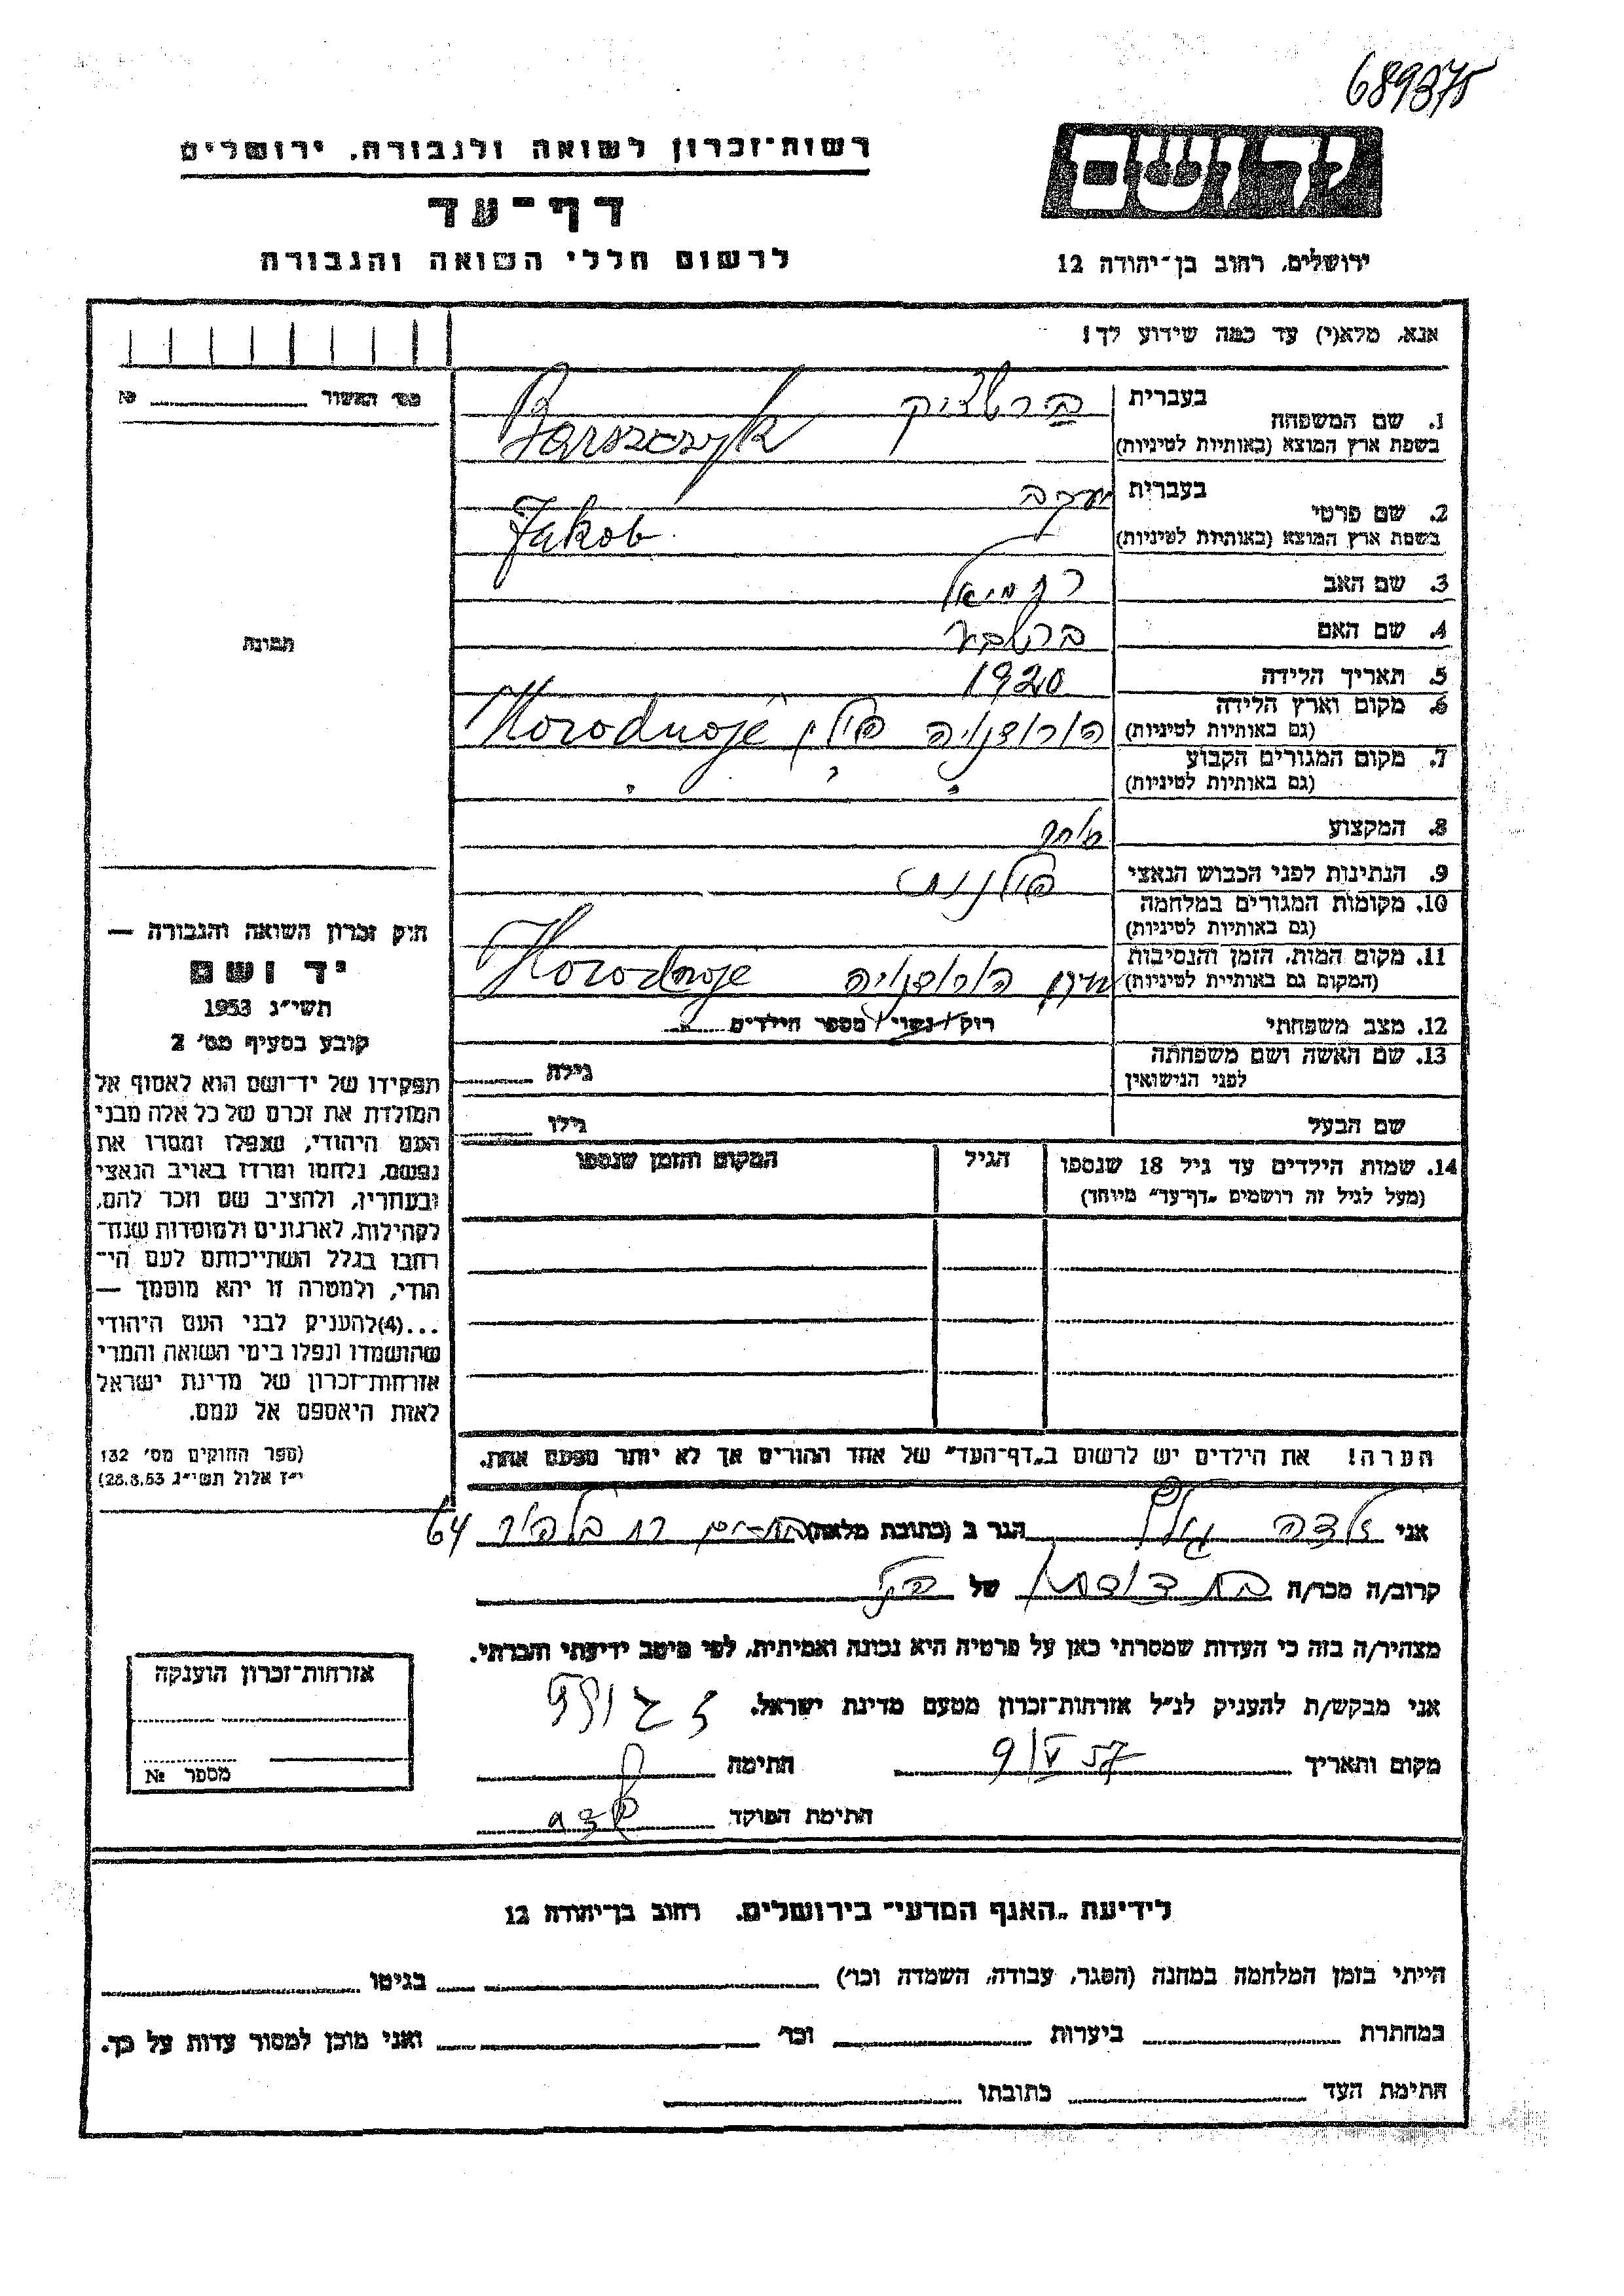 689375
רשות־זכרון לשואה ולגבורה, ירושלים
דף־עד
לרשום חללי השואה והגבורה
יד ושם
ירושלים, רחוב בן־יהודה 12
אנא, מלא(י) עד כמה שידוע לך!
מס' האשור №
1. שם המשפחה בעברית ברשציק
בשפת ארץ המוצא (באותיות לטיניות) Barszczyk
2. שם פרטי בעברית יעקב
בשפת ארץ המוצא (באותיות לטיניות) Jakob
3. שם האב ירחמיאל
4. שם האם
5. תאריך הלידה 1920
6. מקום וארץ הלידה הורודניה פולין Horodnoje
(גם באותיות לטיניות)
7. מקום המגורים הקבוע
(גם באותיות לטיניות)
8. המקצוע סוחר
9. הנתינות לפני הכבוש הנאצי פולנית
10. מקומות המגורים במלחמה
(גם באותיות לטיניות)
11. מקום המות, הזמן והנסיבות הורודניה Horodnoje
(המקום גם באותיות לטיניות)
12. מצב משפחתי רוק/נשוי/ מספר הילדים
13. שם האשה ושם משפחתה
לפני הנישואין גילה
שם הבעל גילו
14. שמות הילדים עד גיל 18 שנספו הגיל המקום והזמן שנספו
(מעל לגיל זה רושמים „דף־עד" מיוחד)
הערה! את הילדים יש לרשום ב„דף־העד" של אחד ההורים אך לא יותר מפעם אחת.
תמונה
חוק זכרון השואה והגבורה —
יד ושם
תשי"ג 1953
קובע בסעיף מס' 2
תפקידו של יד־ושם הוא לאסוף אל
המולדת את זכרם של כל אלה מבני
העם היהודי, שנפלו ומסרו את
נפשם, נלחמו ומרדו באויב הנאצי
ובעוזריו, ולהציב שם וזכר להם,
לקהילות, לארגונים ולמוסדות שנח־
רבו בגלל השתייכותם לעם הי־
הודי, ולמטרה זו יהא מוסמך —
...(4)להעניק לבני העם היהודי
שהושמדו ונפלו בימי השואה והמרי
אזרחות־זכרון של מדינת ישראל
לאות היאספם אל עמם.
(ספר החוקים מס' 132
י"ז אלול תשי"ג 28.8.53)
אני זלדה הגר ב (כתובת מלאה) רח בלפור 64
קרוב/ה מכר/ה בת דודתו של הנ"ל
מצהיר/ה בזה כי העדות שמסרתי כאן על פרטיה היא נכונה ואמיתית, לפי מיטב ידיעתי והכרתי.
אני מבקש/ת להעניק לנ"ל אזרחות־זכרון מטעם מדינת ישראל.
מקום ותאריך 9/V 57 חתימה
חתימת הפוקד
אזרחות־זכרון הוענקה
מספר №
לידיעת „האגף המדעי" בירושלים, רחוב בן־יהודה 12
הייתי בזמן המלחמה במחנה (הסגר, עבודה, השמדה וכו') בגיטו
במחתרת ביערות וכו' ואני מוכן למסור עדות על כך.
חתימת העד כתובתו